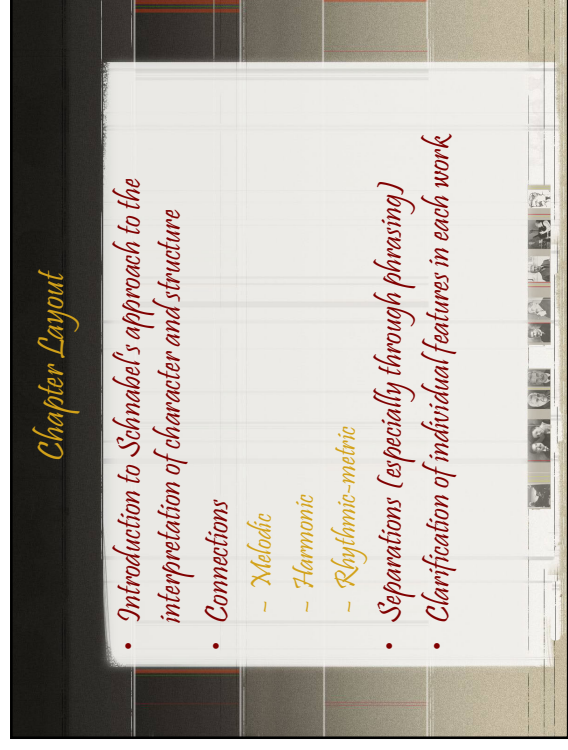 Chapter Layout
• Introduction to Schnabel's approach to the
interpretation of character and structure
• Connections
– Melodic
– Harmonic
– Rhythmic-metric
• Separations (especially through phrasing)
• Clarification of individual features in each work